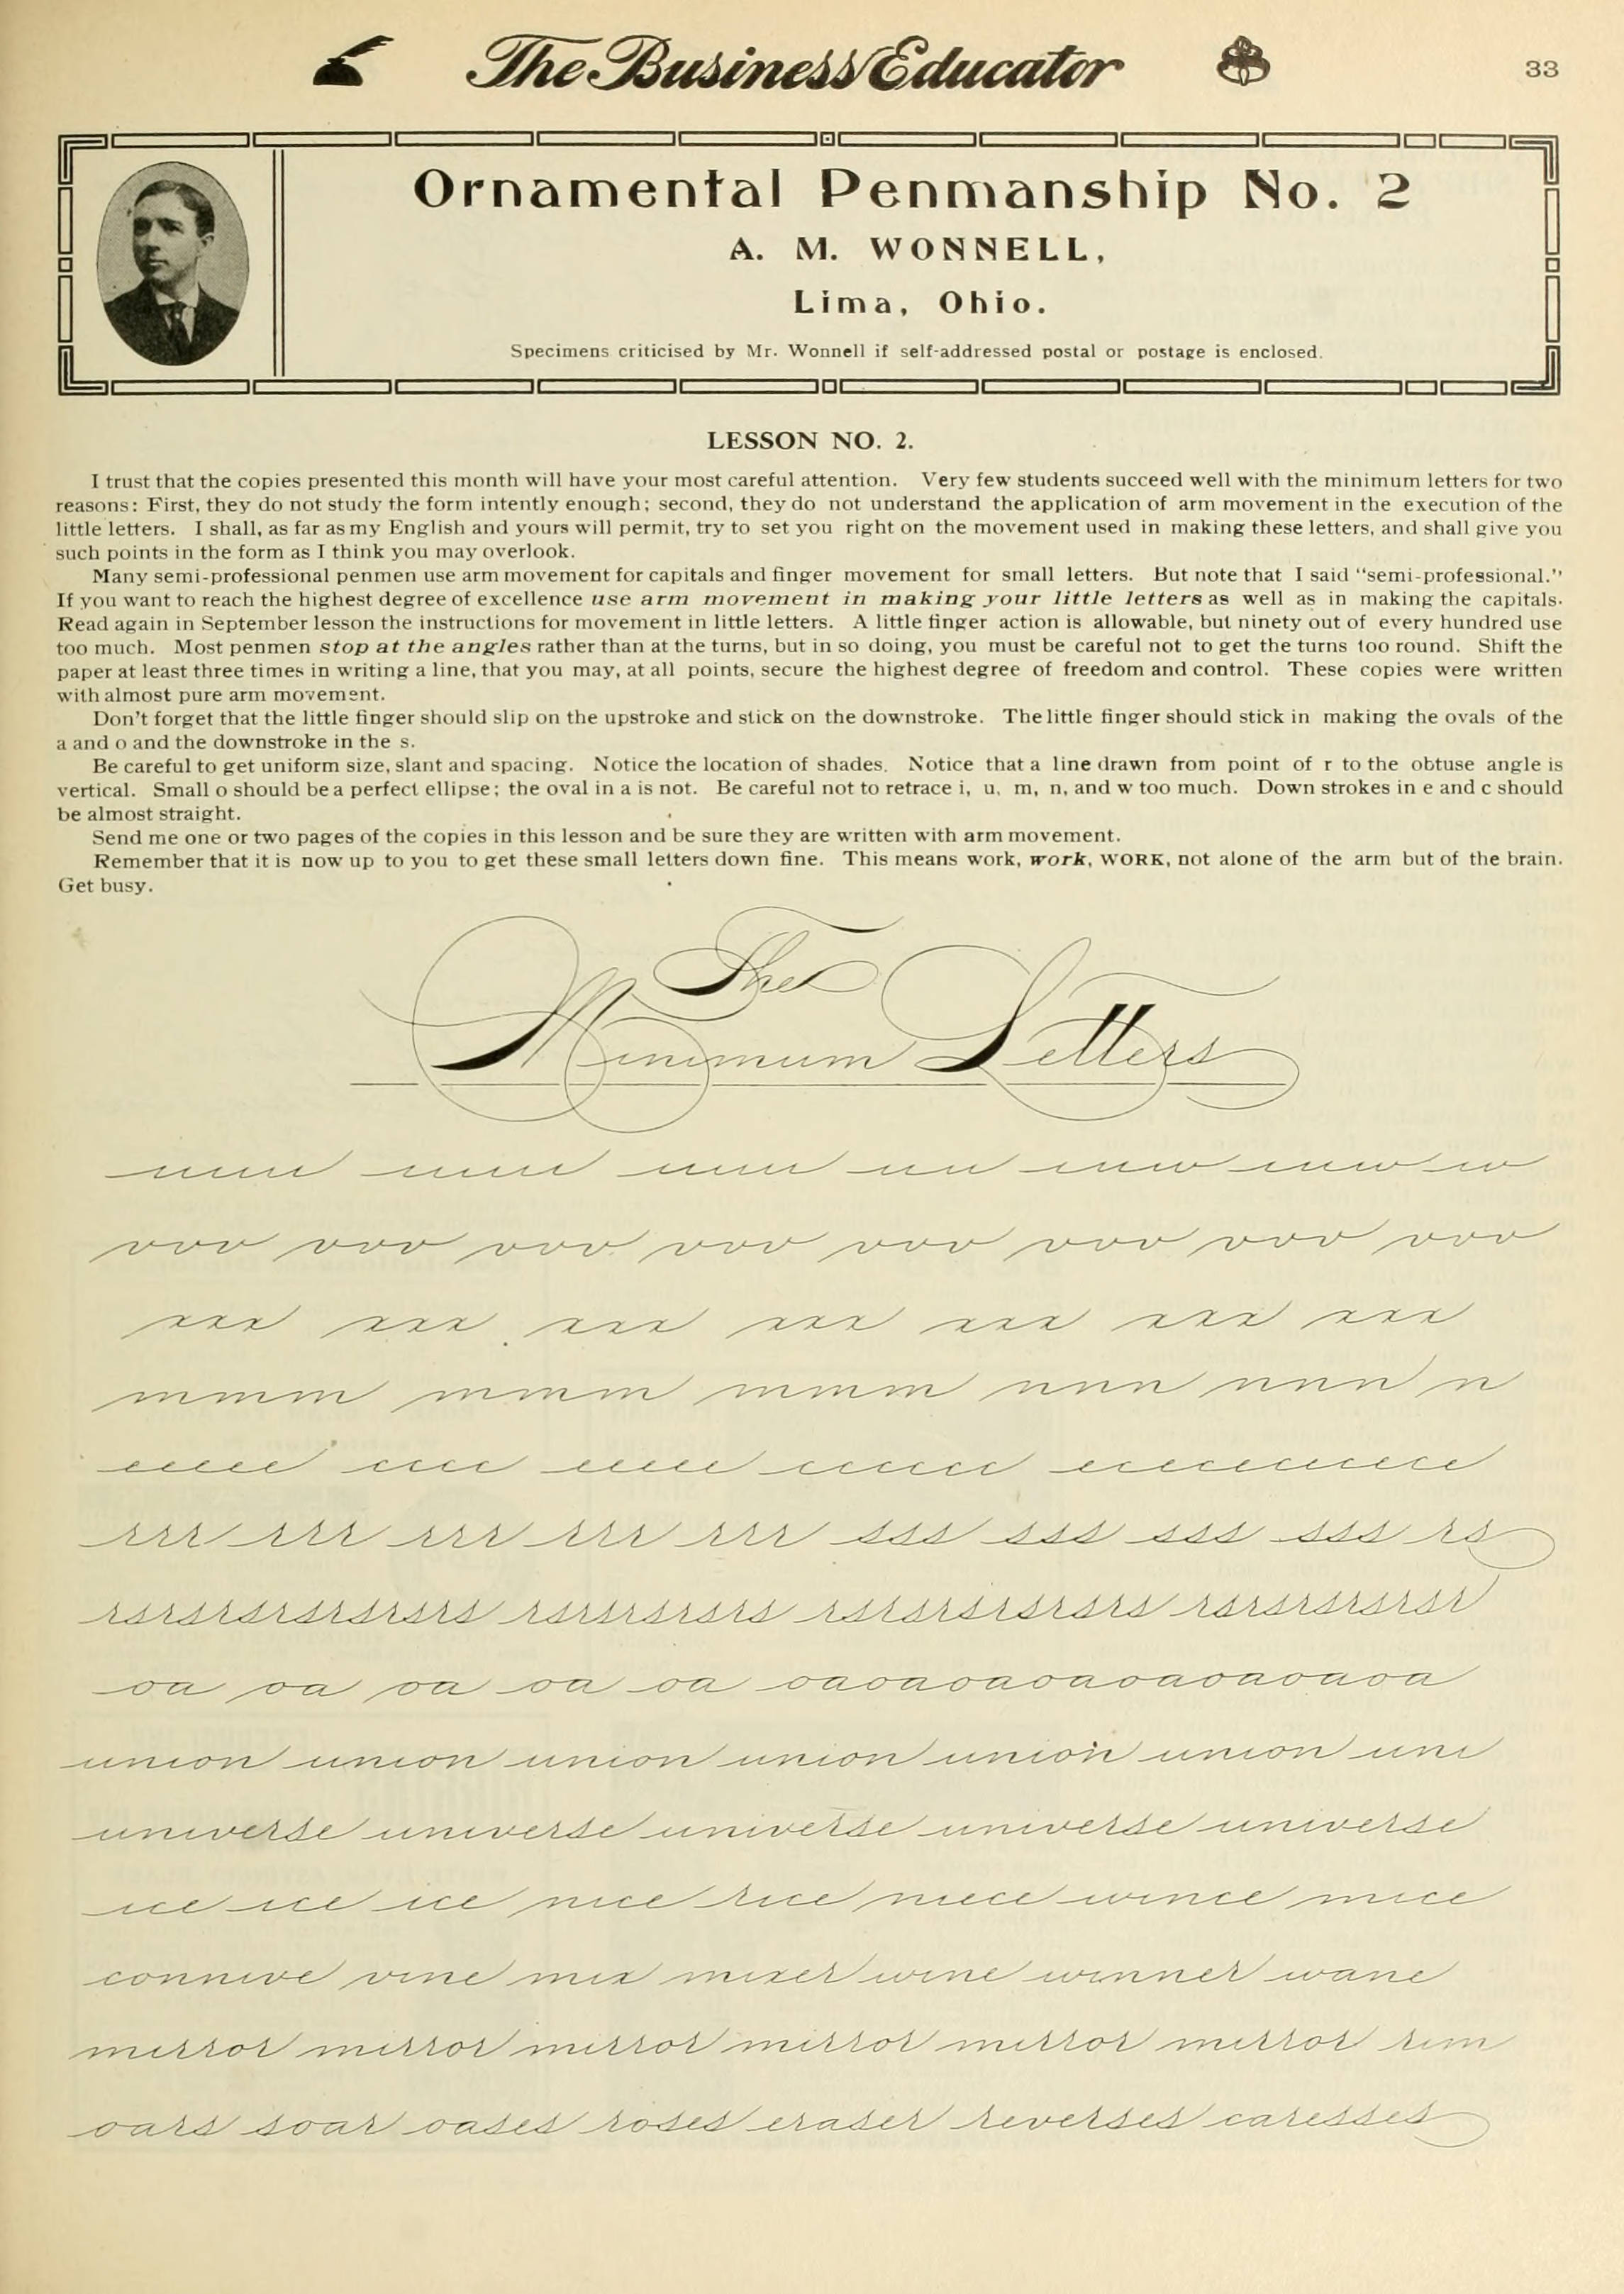 The Business Educator
33
Ornamental Penmanship No. 2
A. M. WONNELL,
Lima, Ohio.
Specimens criticised by Mr. Wonnell if self-addressed postal or postage is enclosed.
LESSON NO. 2.
I trust that the copies presented this month will have your most careful attention. Very few students succeed well with the minimum letters for two
reasons: First, they do not study the form intently enough; second, they do not understand the application of arm movement in the execution of the
little letters. I shall, as far as my English and yours will permit, try to set you right on the movement used in making these letters, and shall give you
such points in the form as I think you may overlook.
Many semi-professional penmen use arm movement for capitals and finger movement for small letters. But note that I said "semi-professional."
If you want to reach the highest degree of excellence use arm movement in making your little letters as well as in making the capitals.
Read again in September lesson the instructions for movement in little letters. A little finger action is allowable, but ninety out of every hundred use
too much. Most penmen stop at the angles rather than at the turns, but in so doing, you must be careful not to get the turns too round. Shift the
paper at least three times in writing a line, that you may, at all points, secure the highest degree of freedom and control. These copies were written
with almost pure arm movement.
Don't forget that the little finger should slip on the upstroke and stick on the downstroke. The little finger should stick in making the ovals of the
a and o and the downstroke in the s.
Be careful to get uniform size, slant and spacing. Notice the location of shades. Notice that a line drawn from point of r to the obtuse angle is
vertical. Small o should be a perfect ellipse; the oval in a is not. Be careful not to retrace i, u, m, n, and w too much. Down strokes in e and c should
be almost straight.
Send me one or two pages of the copies in this lesson and be sure they are written with arm movement.
Remember that it is now up to you to get these small letters down fine. This means work, work, WORK, not alone of the arm but of the brain.
Get busy.
The
Minimum Letters
vvv vvv vvv vvv vvv vvv vvv vvv
xxx xxx xxx xxx xxx xxx xxx
mmm mmm mmm nnn nnn n
rrr rrr rrr rrr rrr sss sss sss sss rs
rsrsrsrsrsrs rsrsrsrs rsrsrsrsrsrs rsrsrsrsr
oa oa oa oa oa oaoaoaoaoaoaoaoa
union union union union union union uni
universe universe universe universe universe
ice ice ice nice rice niece wince mice
connive vine mix mixer wine winner wane
mirror mirror mirror mirror mirror mirror rim
oars soar oases roses eraser reverses caresses